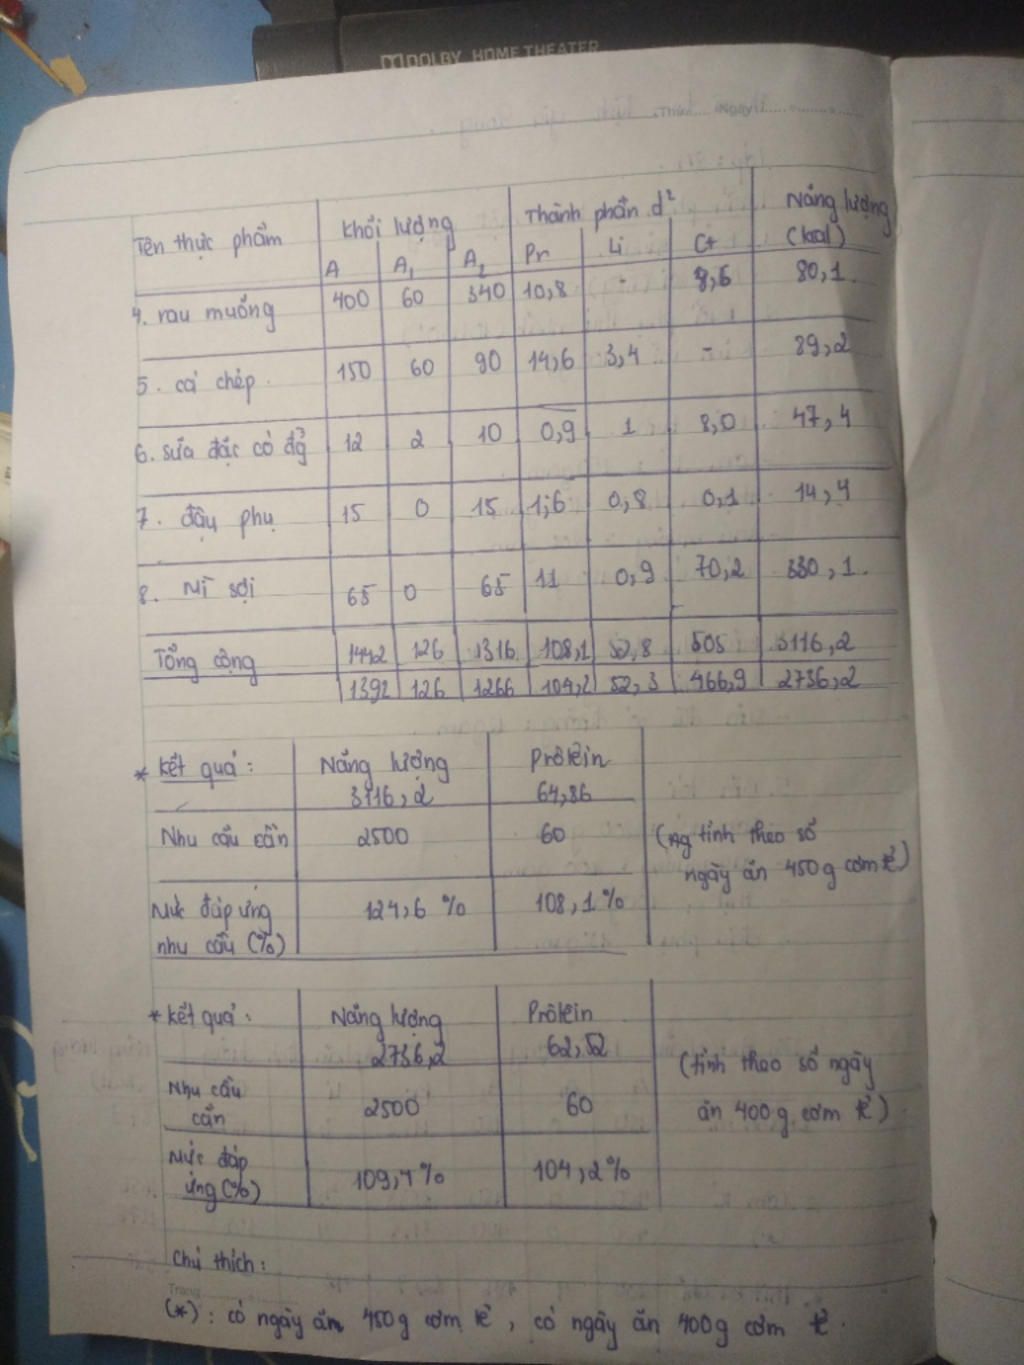 DOLBY HOME THEATER
Thứ: Ngày:
Tên thực phẩm Khối lượng Thành phần d² Năng lượng
A A₁ A₂ Pr Li Ct (kcal)
4. rau muống 400 60 340 10,8 - 8,6 80,1
5. cá chép 150 60 90 14,6 3,4 - 89,2
6. sữa đặc có đg̉ 12 2 10 0,9 1 8,0 47,4
7. đậu phụ 15 0 15 1,6 0,8 0,1 14,4
8. Mì sợi 65 0 65 11 0,9 70,2 330,1
Tổng cộng 1442 126 1316 108,1 52,8 505 3116,2
1392 126 1266 104,2 52,3 466,9 2736,2
* Kết quả: Năng lượng Prôtêin
3116,2 64,86
Nhu cầu cần 2500 60 (tính theo số
ngày ăn 450g cơm tẻ)
Mức đáp ứng 124,6 % 108,1 %
nhu cầu (%)
* Kết quả: Năng lượng Prôtêin
2736,2 62,52
(tính theo số ngày
Nhu cầu
cần 2500 60 ăn 400g cơm tẻ)
Mức đáp
ứng (%) 109,4 % 104,2 %
Chú thích:
Trang
(*): có ngày ăn 450g cơm tẻ, có ngày ăn 400g cơm tẻ.